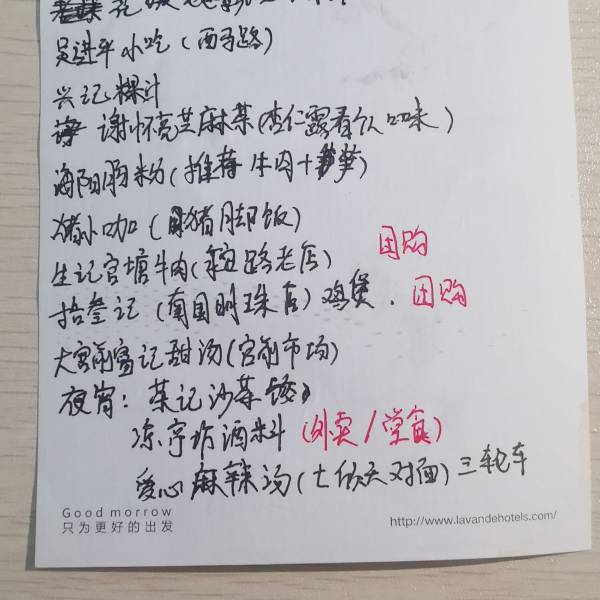 吴进平小吃(西马路)
兴记粿汁
谢怀亮芝麻茶(杏仁露看个人口味)
海阳肠粉(推荐牛肉+萝)
猪小咖(猪脚饭)
生记官塘牛肉(路老店) 团购
拾叁记(南国明珠店)鸡煲. 团购
大宫前富记甜汤(宫前市场)
夜宵: 茶记沙茶
冻亨炸酒料(外卖/堂食)
爱心麻辣汤(七天对面)三轮车
Good morrow
只为更好的出发
http://www.lavandehotels.com/